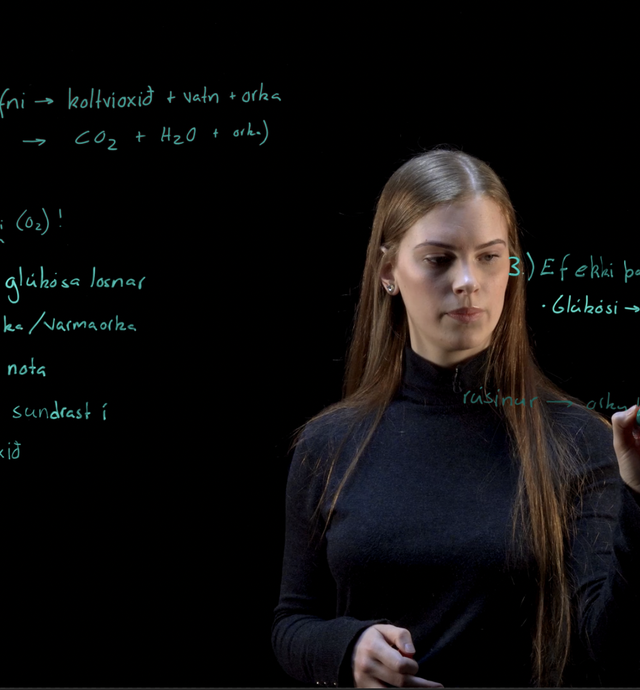 fni → koltvioxið + vatn + orka
→ CO₂ + H₂O + orka)
i (O₂)!
glúkósa losnar
ka/varmaorka
nota
sundrast í
xið
3.) Ef ekki þa
• Glúkósi →
rúsínur → orku